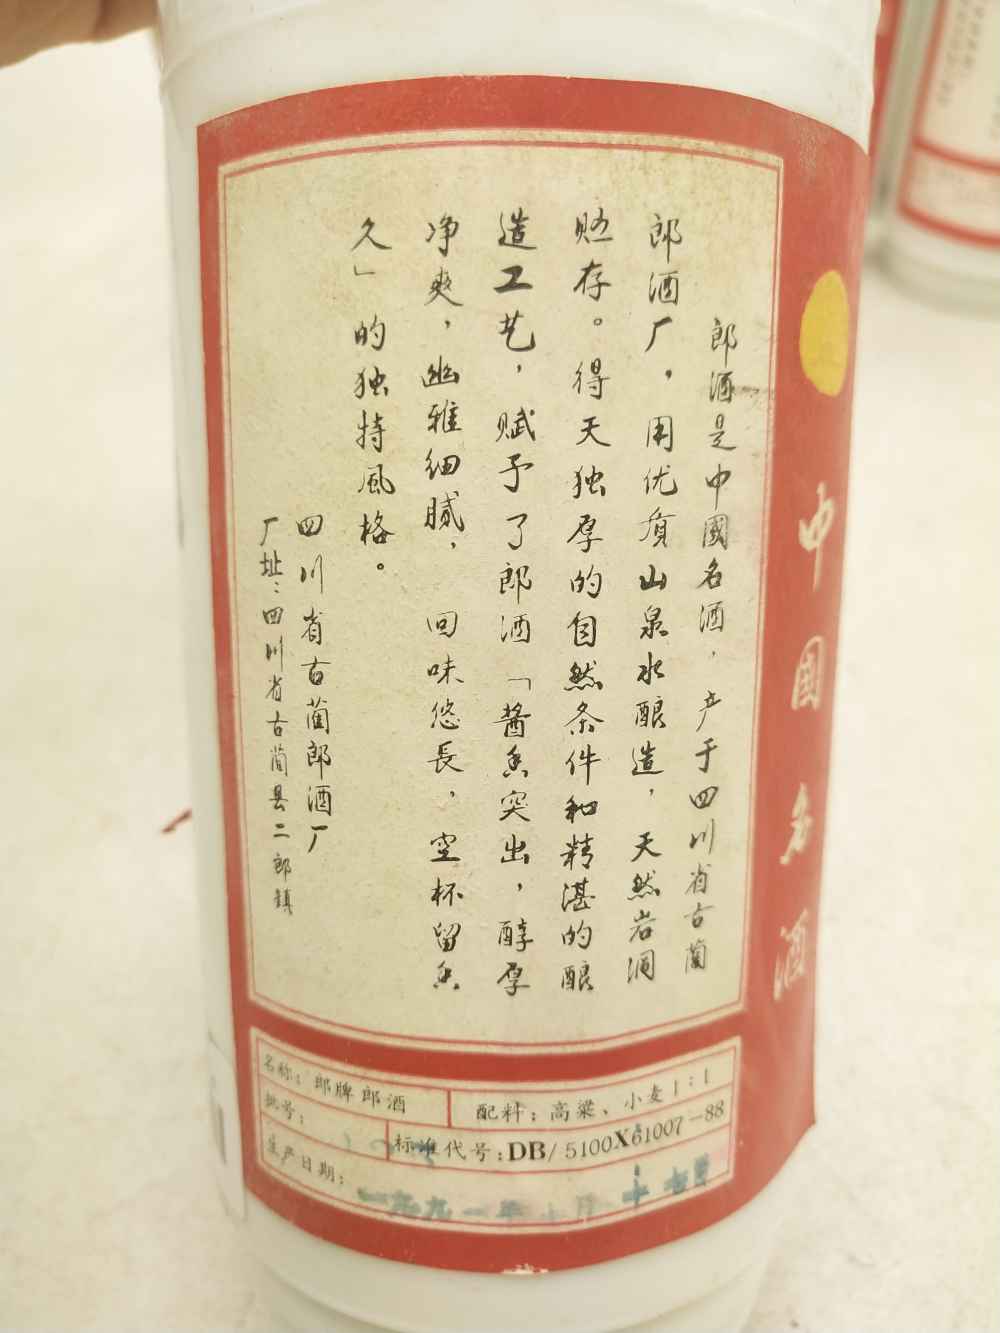 中國名酒
郎酒是中國名酒，产于四川省古蔺
郎酒厂，用优质山泉水酿造，天然岩洞
贮存。得天独厚的自然条件和精湛的酿
造工艺，赋予了郎酒「醬香突出，醇厚
净爽，幽雅细腻，回味悠長，空杯留香
久」的独特風格。
四川省古蔺郎酒厂
厂址：四川省古蔺县二郎鎮
名称：郎牌郎酒
配料：高粱、小麦 1：1
批号：
标准代号：DB/5100X61007-88
生产日期：
一九九一年十月十七日